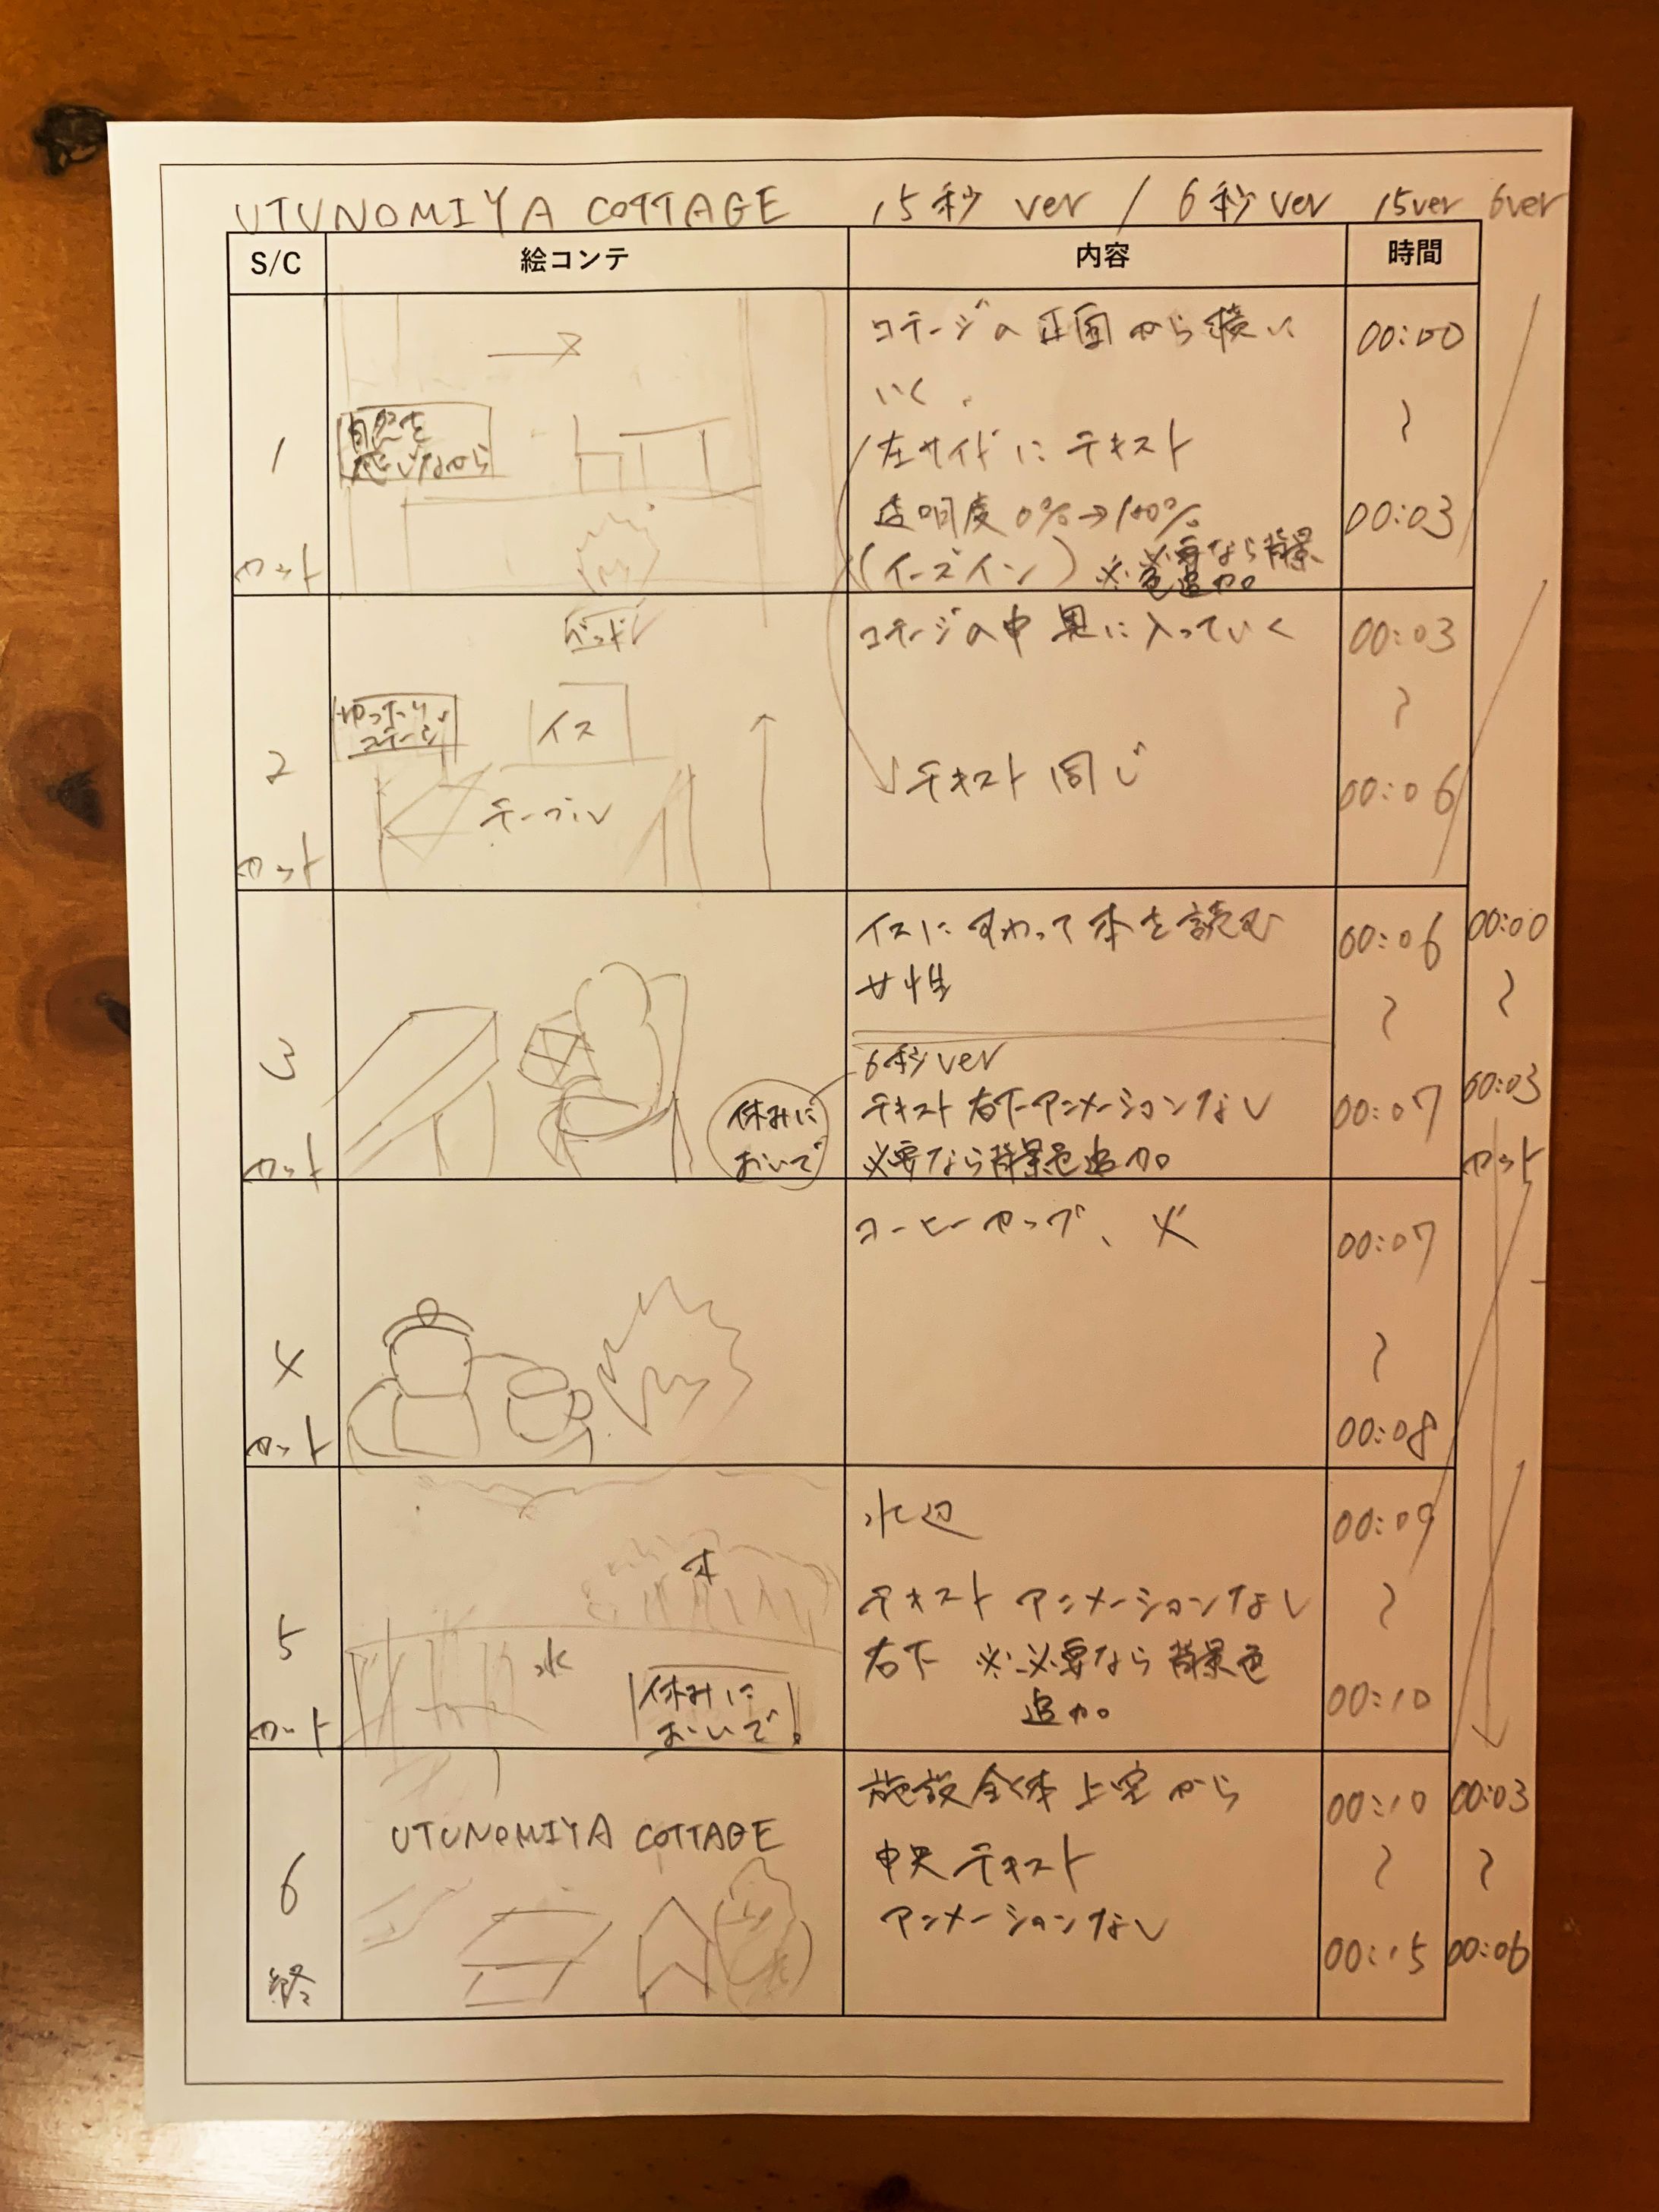 UTUNOMIYA COTTAGE 15秒 ver / 6秒 ver 15ver 6ver
S/C 絵コンテ 内容 時間
1
カット
自然を
感じながら
コテージの正面から横に
いく。
左サイドにテキスト
透明度 0%→100%
(イーズイン) ※必要なら背景
色追加。
00:00
〜
00:03
2
カット
ベッド
ゆったり
コテージ
イス
テーブル
コテージの中 奥に入っていく
テキスト同じ
00:03
〜
00:06
3
カット
休みに
おいで
イスにすわって本を読む
女性
6秒ver
テキスト右下アニメーションなし
※必要なら背景色追加。
00:06
〜
00:07
00:00
〜
00:03
カット
4
カット
コーヒーカップ、火
00:07
〜
00:08
5
カット
木
水
休みに
おいで。
水辺
テキスト アニメーションなし
右下 ※必要なら背景色
追加。
00:09
〜
00:10
6
終
UTUNOMIYA COTTAGE
施設全体上空から
中央テキスト
アニメーションなし
00:10
〜
00:15
00:03
〜
00:06